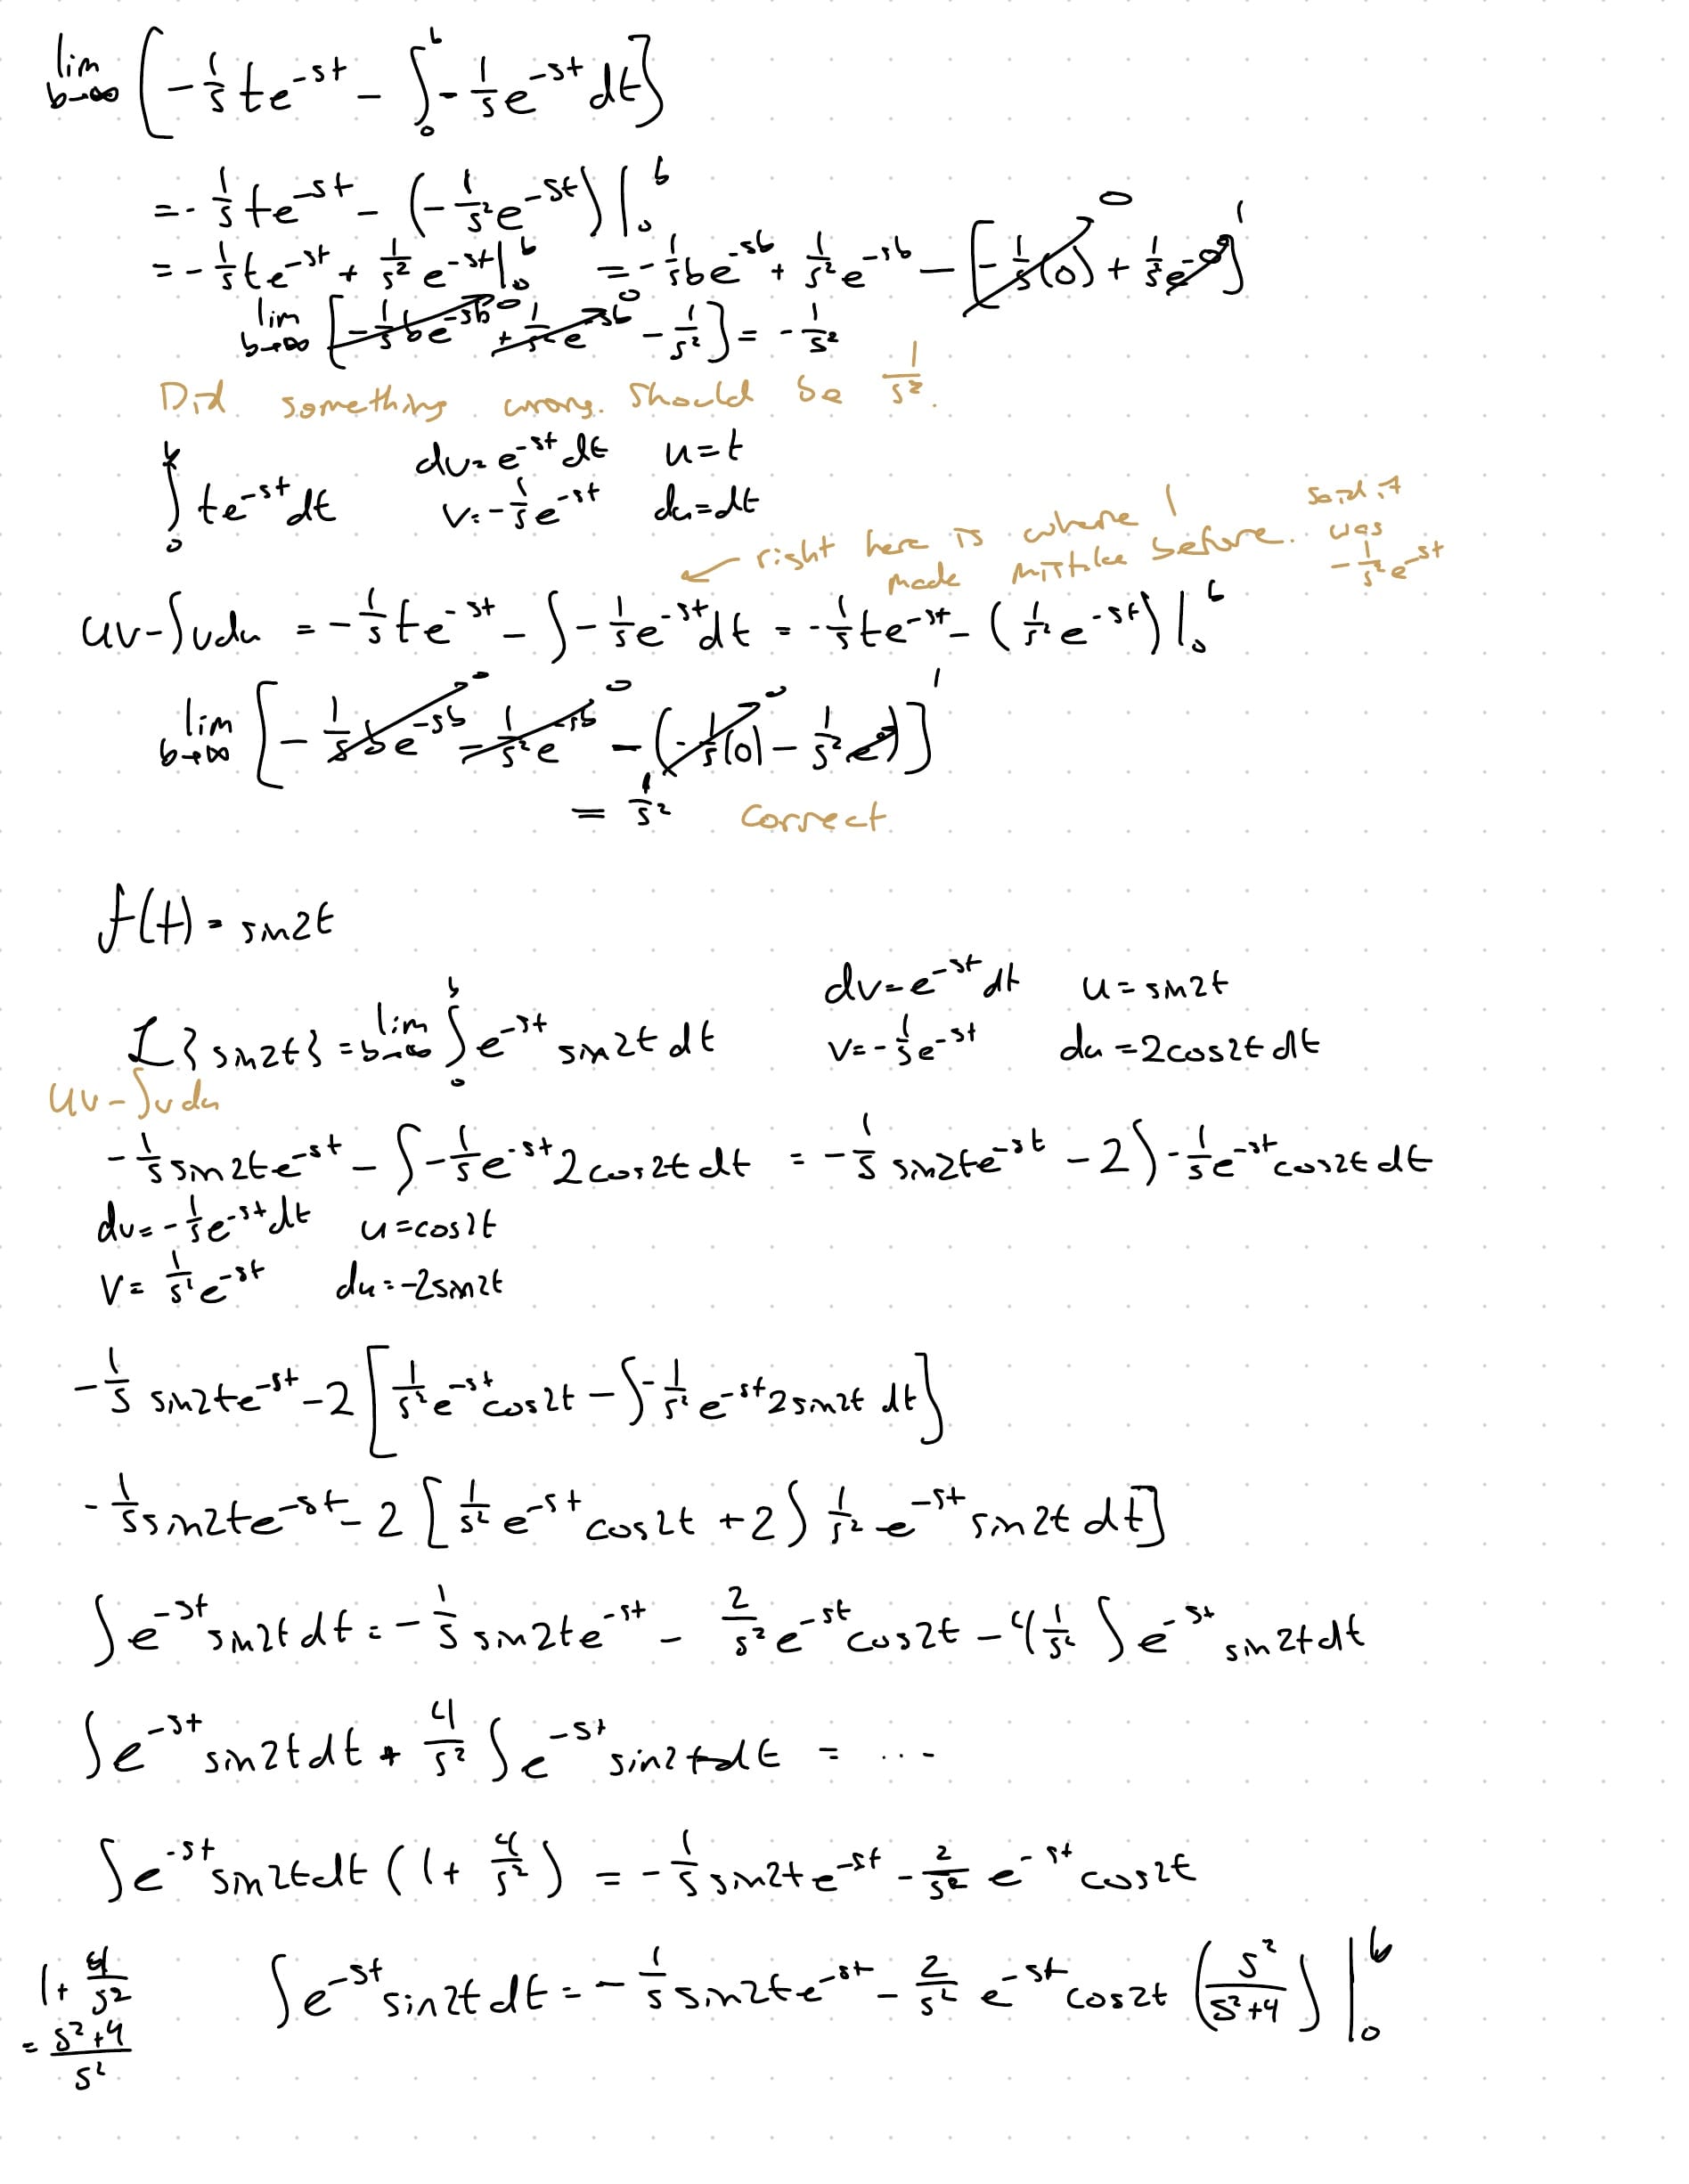 lim b→∞ [-1/s te^-st - ∫_0^b -1/s e^-st dt]
= -1/s te^-st - (-1/s² e^-st) |_0^b
= -1/s te^-st + 1/s² e^-st |_0^b = -1/s be^-sb + 1/s² e^-sb - [-1/s (0) + 1/s² e^-0] 0 1
lim b→∞ [-1/s be^-sb 0 + 1/s² e^-sb 0 - 1/s²] = -1/s²
Did something wrong. Should be 1/s².
∫_0^b te^-st dt dv = e^-st dt u = t
v = -1/s e^-st du = dt
← right here is where I made mistake before. Said it was -1/s² e^-st
uv - ∫vdu = -1/s te^-st - ∫ -1/s e^-st dt = -1/s te^-st - (1/s² e^-st) |_0^b
lim b→∞ [-1/s be^-sb 0 - 1/s² e^-sb 0 - (-1/s (0) 0 - 1/s² e^0)] 1
= 1/s² Correct
f(t) = sin2t
ℒ{sin2t} = lim b→∞ ∫_0^b e^-st sin2t dt dv = e^-st dt u = sin2t
v = -1/s e^-st du = 2cos2t dt
uv - ∫vdu
-1/s sin2te^-st - ∫ -1/s e^-st 2cos2t dt = -1/s sin2te^-st - 2∫ -1/s e^-st cos2t dt
dv = -1/s e^-st dt u = cos2t
v = 1/s² e^-st du = -2sin2t
-1/s sin2te^-st - 2[1/s² e^-st cos2t - ∫ -1/s² e^-st 2sin2t dt]
-1/s sin2te^-st - 2[1/s² e^-st cos2t + 2∫ 1/s² e^-st sin2t dt]
∫e^-st sin2t dt = -1/s sin2te^-st - 2/s² e^-st cos2t - 4 1/s² ∫e^-st sin2t dt
∫e^-st sin2t dt + 4/s² ∫e^-st sin2t dt = ...
∫e^-st sin2t dt (1 + 4/s²) = -1/s sin2te^-st - 2/s² e^-st cos2t
1 + 4/s² = (s²+4)/s²
∫e^-st sin2t dt = -1/s sin2te^-st - 2/s² e^-st cos2t (s²/(s²+4)) |_0^b